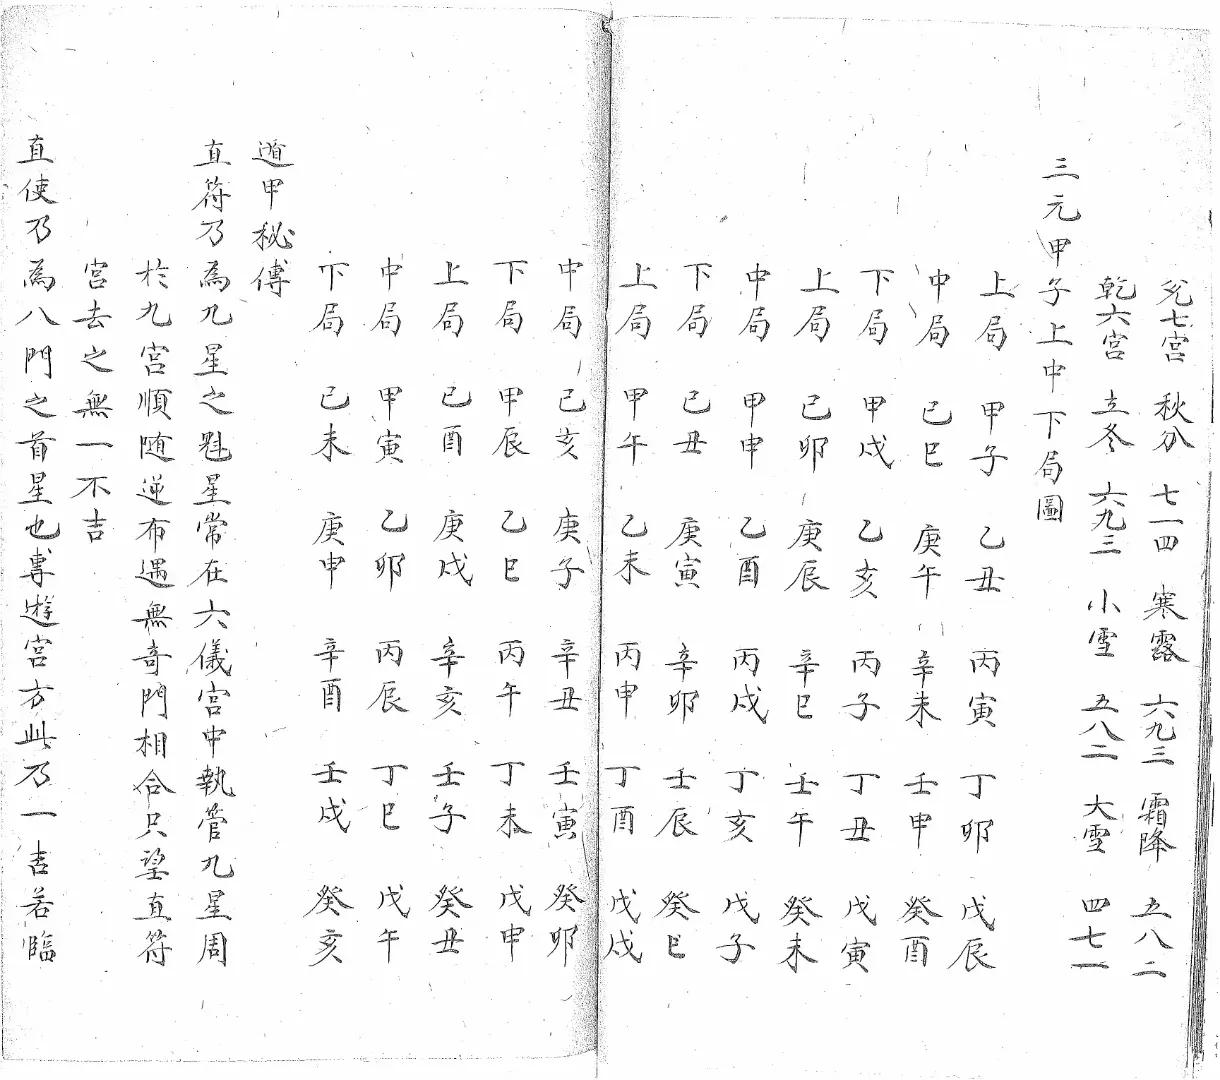 兌七宮 秋分 七一四 寒露 六九三 霜降 五八二
乾六宮 立冬 六九三 小雪 五八二 大雪 四七一
三元甲子上中下局圖
上局 甲子 乙丑 丙寅 丁卯 戊辰
中局 己巳 庚午 辛未 壬申 癸酉
下局 甲戌 乙亥 丙子 丁丑 戊寅
上局 己卯 庚辰 辛巳 壬午 癸未
中局 甲申 乙酉 丙戌 丁亥 戊子
下局 己丑 庚寅 辛卯 壬辰 癸巳
上局 甲午 乙未 丙申 丁酉 戊戌
中局 己亥 庚子 辛丑 壬寅 癸卯
下局 甲辰 乙巳 丙午 丁未 戊申
上局 己酉 庚戌 辛亥 壬子 癸丑
中局 甲寅 乙卯 丙辰 丁巳 戊午
下局 己未 庚申 辛酉 壬戌 癸亥
遁甲秘傳
直符乃為九星之魁星常在六儀宮中執管九星周
於九宮順随逆布遇無奇門相合只望直符
宮去之無一不吉
直使乃為八門之首星也專遊宮方此乃一吉若臨